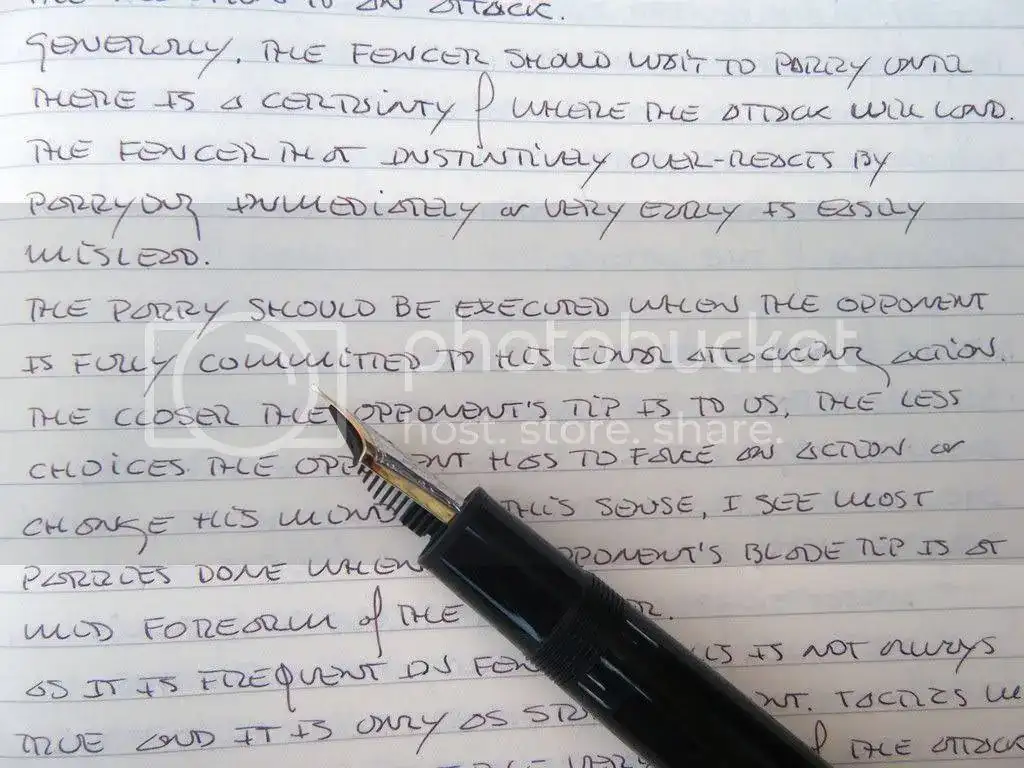 TO AN ATTACK.
GENERALLY, THE FENCER SHOULD WAIT TO PARRY UNTIL
THERE IS A CERTAINTY OF WHERE THE ATTACK WILL LAND.
THE FENCER THAT INSTINTIVELY OVER-REACTS BY
PARRYING IMMEDIATELY OR VERY EARLY IS EASILY
MISLEAD.
THE PARRY SHOULD BE EXECUTED WHEN THE OPPONENT
IS FULLY COMMITTED TO HIS FINAL ATTACKING ACTION.
THE CLOSER THE OPPONENT'S TIP IS TO US, THE LESS
CHOICES THE OPP NT HAS TO FAKE AN ACTION OR
CHANGE HIS MIND THIS SENSE, I SEE MOST
PARRIES DONE WHEN PPONENT'S BLADE TIP IS AT
MID FOREARM OF THE R.
AS IT IS FREQUENT IN FEN IS IS NOT ALWAYS
TRUE AND IT IS ONLY AS NT. TACTICS
THE ATTACK
photobucket
host. store. share.